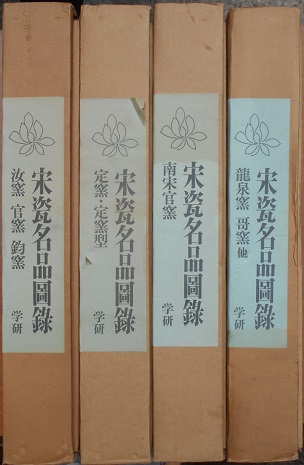 宋瓷名品圖錄
汝窯 官窯 鈞窯
学研
宋瓷名品圖錄
定窯・定窯型
学研
宋瓷名品圖錄
南宋官窯
学研
宋瓷名品圖錄
龍泉窯 哥窯 他
学研